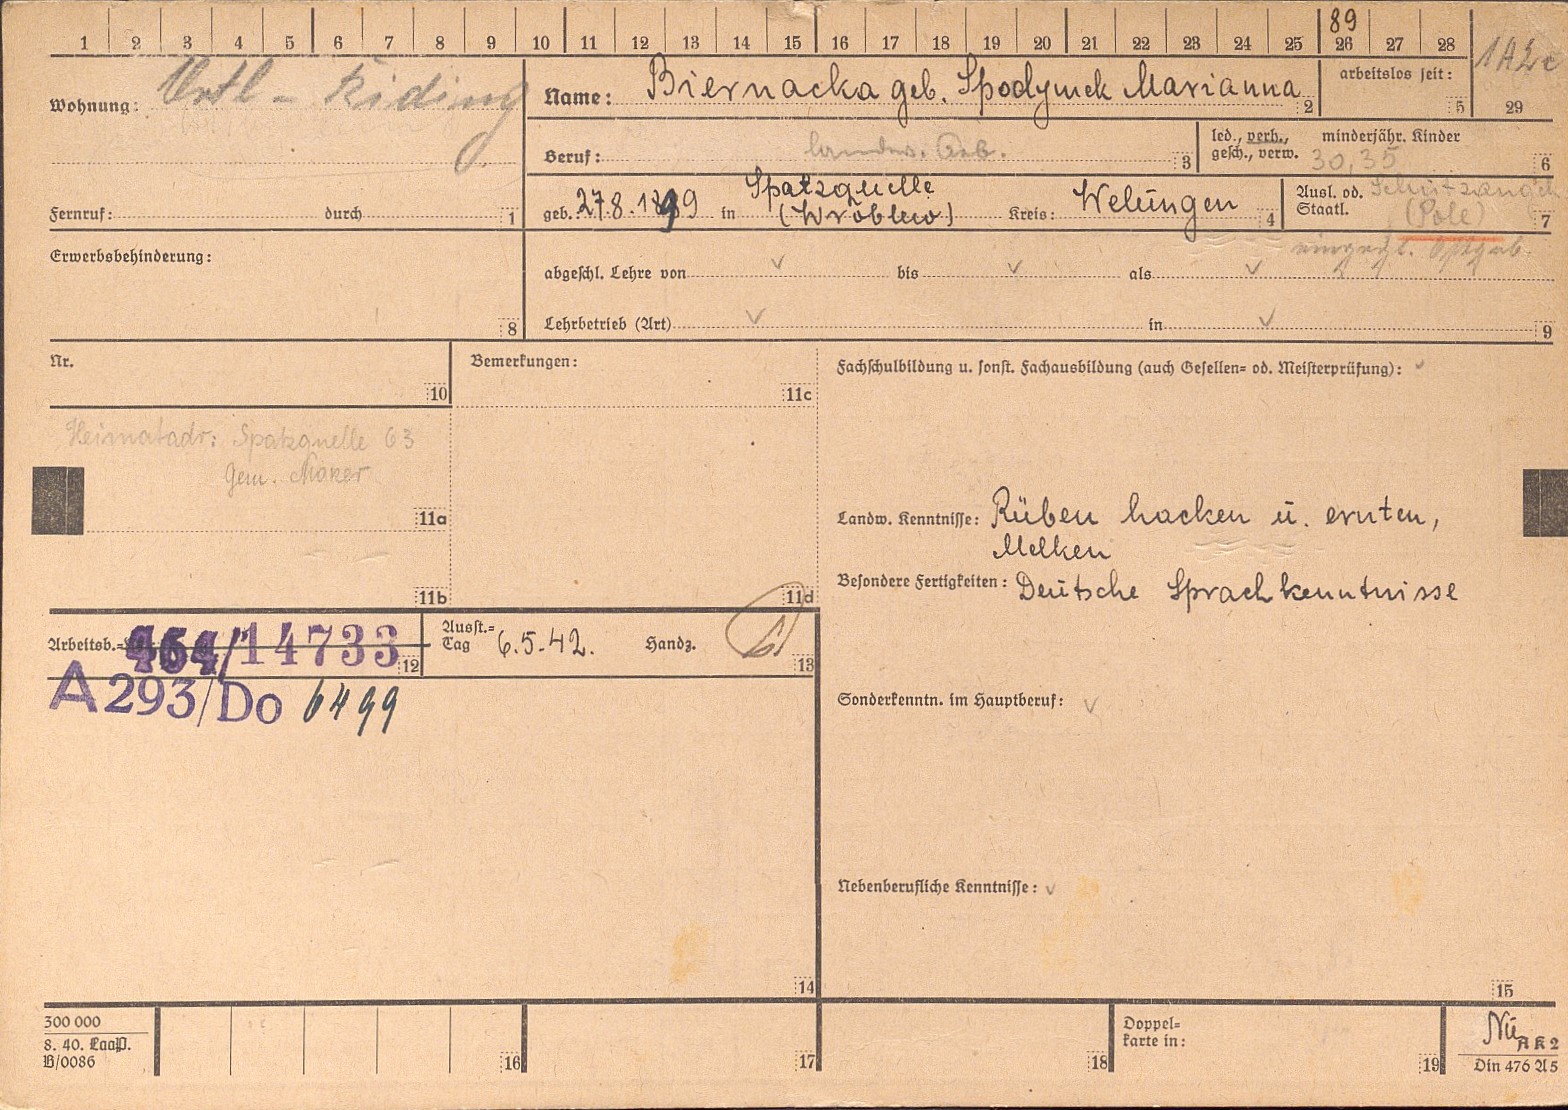 1 2 3 4 5 6 7 8 9 10 11 12 13 14 15 16 17 18 19 20 21 22 23 24 25 26 27 28 29
89
1A2c
Wohnung: Ortl - Riding
Name: Biernacka geb. Spodymek Marianna 2
arbeitslos seit: 5
Beruf: landw. Arb. 3
led., verh., gesch., verw.
minderjähr. Kinder 30,35 6
Fernruf: durch 1
geb. 27.8.1899 in Spatzquelle (Wröblew) Kreis: Welungen 4
Ausl. od. Staatl. Schutzangeh. (Pole) 7
eingegl. Ostgeb.
Erwerbsbehinderung: 8
abgeschl. Lehre von bis als
Lehrbetrieb (Art) in 9
Nr. 10
Bemerkungen: 11c
Fachschulbildung u. sonst. Fachausbildung (auch Gesellen- od. Meisterprüfung):
Heimatadr: Spatzquelle 63
Gem. Naker
11a
11b
11d
Landw. Kenntnisse: Rüben hacken u. ernten,
Melken
Besondere Fertigkeiten: Deutsche Sprachkenntnisse
Arbeitsb.- 464/14733 12
Ausst.-Tag 6.5.42. Handz. 13
A 293/Do 6499
Sonderkenntn. im Hauptberuf:
Nebenberufliche Kenntnisse:
14
15
300 000
8. 40. LaaP.
B/0086
16
17
18
Doppel-
karte in:
19
Nü
AK 2
Din 476 A5